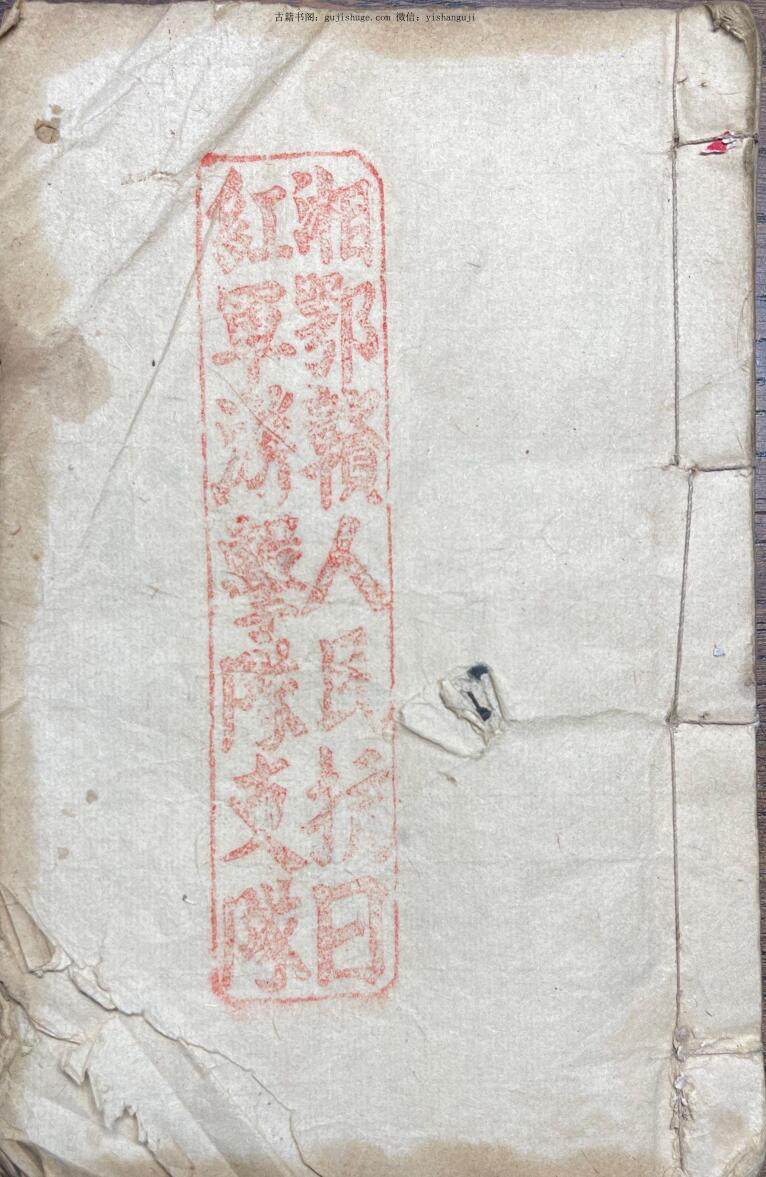 古籍书阁：gujishuge.com 微信：yishanguji
湘鄂贛人民抗日
紅軍游擊隊支隊